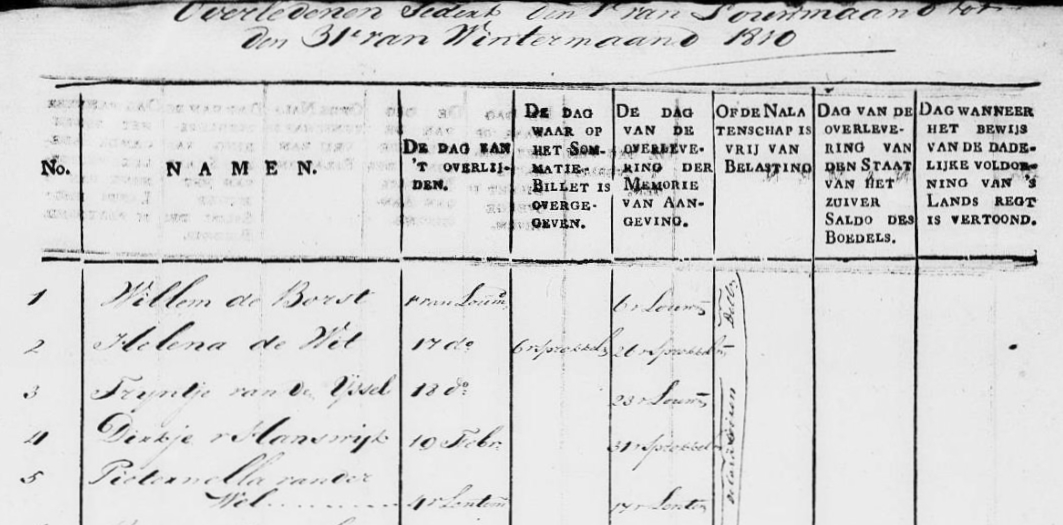 Overledenen Sedert den 1e van Louwmaand tot
den 31e van Wintermaand 1810
No.
N A M E N.
DE DAG VAN
'T OVERLIJ-
DEN.
DE DAG
WAAR OP
HET SOM-
MATIE-
BILLET IS
OVERGE-
GEVEN.
DE DAG
VAN DE
OVERLEVE-
RING DER
MEMORIE
VAN AAN-
GEVING.
OF DE NALA
TENSCHAP IS
VRIJ VAN
BELASTING
DAG VAN DE
OVERLEVE-
RING VAN
DEN STAAT
VAN HET
ZUIVER
SALDO DES
BOEDELS.
DAG WANNEER
HET BEWIJS
VAN DE DADE-
LIJKE VOLDOE-
NING VAN 'S
LANDS REGT
IS VERTOOND.
1 Willem de Borst 1e van Louwm 6 v Louwm
2 Helena de Wit 17 do 6 v Sprokkelm 26 v Sprokkelm
3 Tryntje van den Yssel 18 do 23 v Louwm
4 Dirkje v Hanswijk 19 Febr. 31 v Sprokkelm
5 Pieternella van der
Wel 4 v Lentem 17 v Lentem